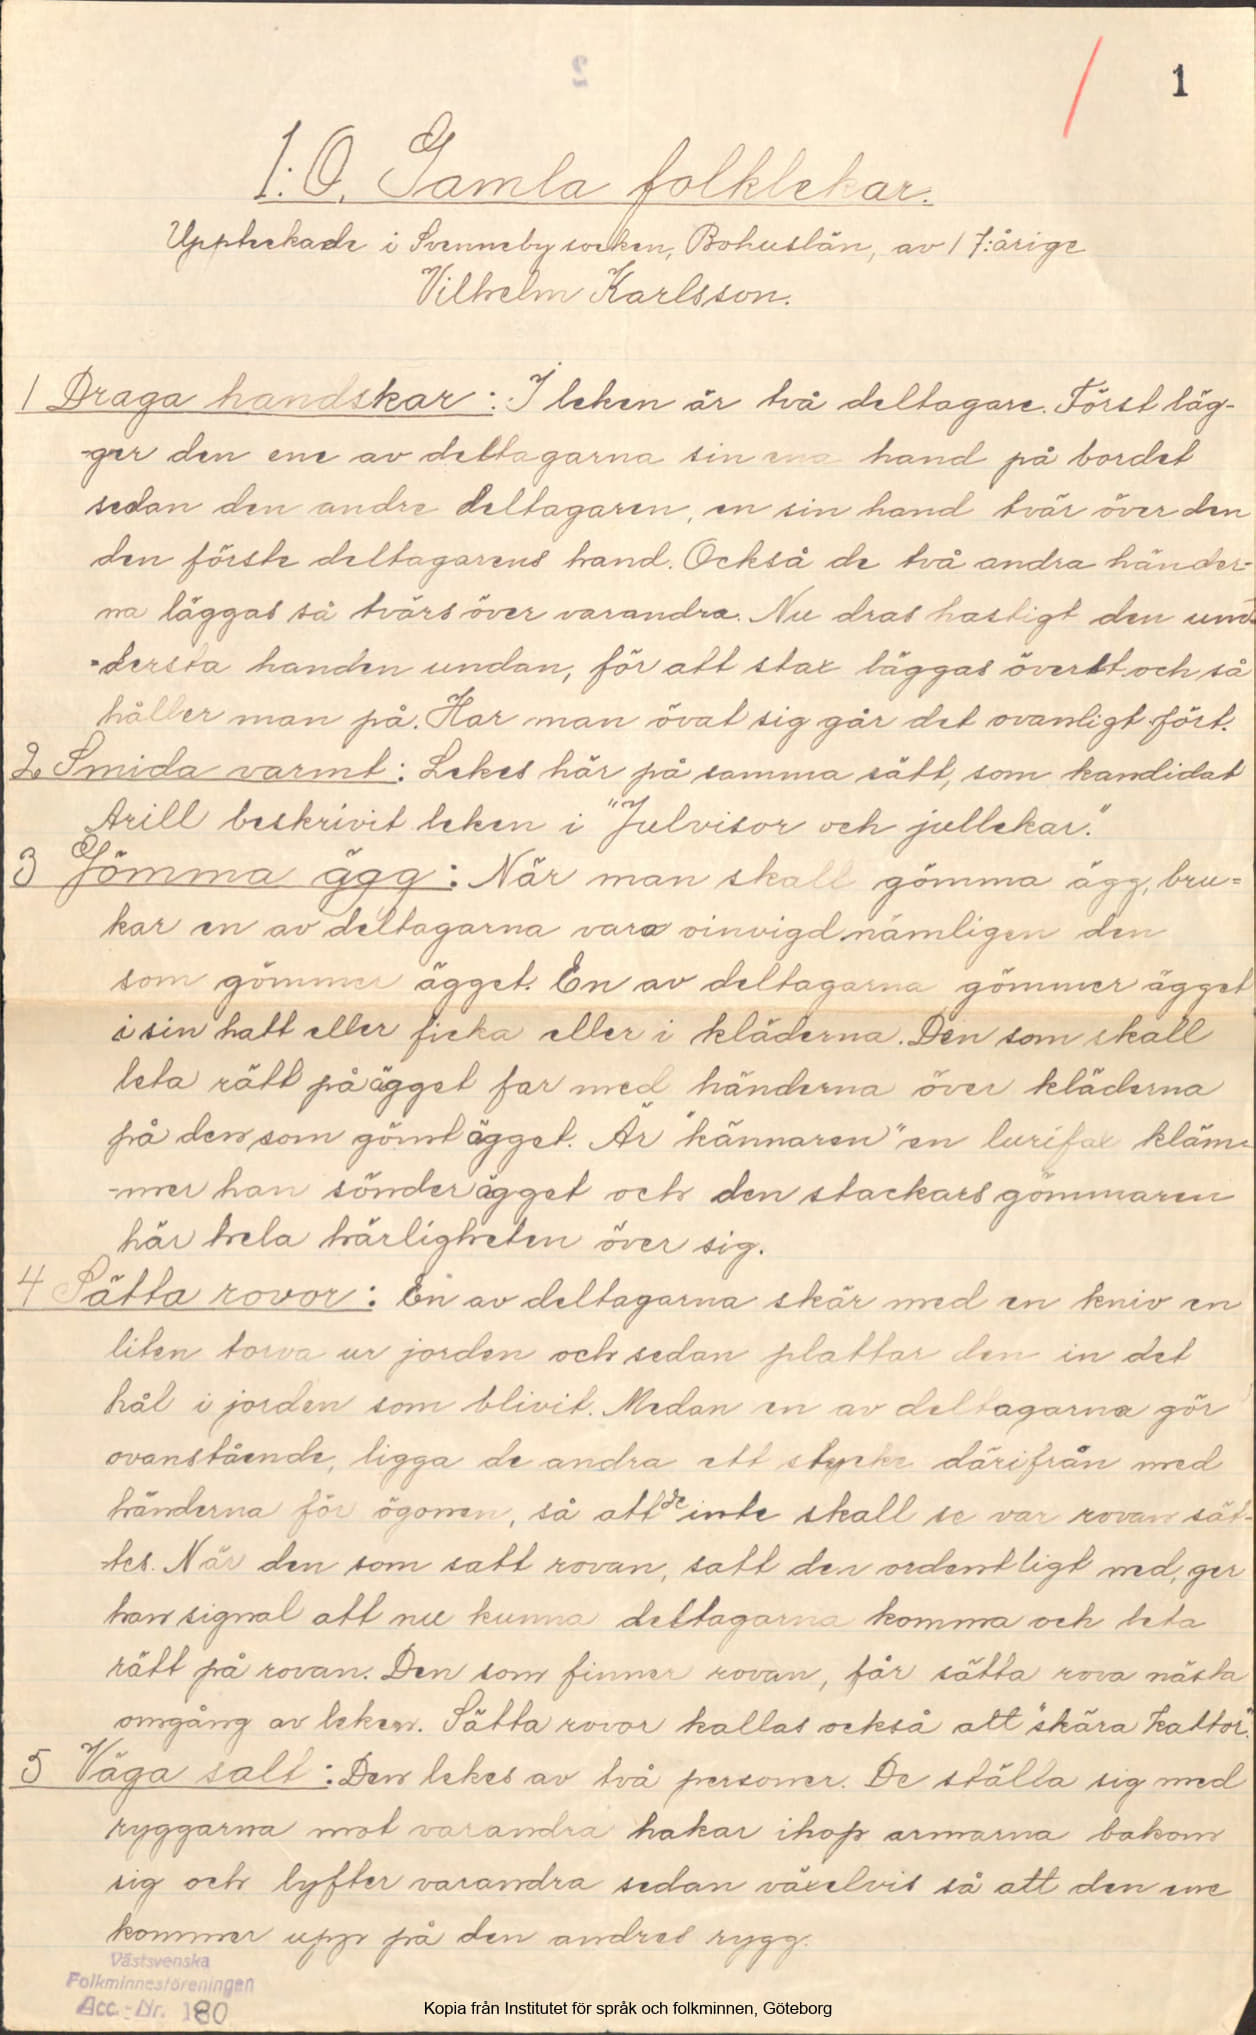 1
1:O. Gamla folklekar.
Upptekade i Svenneby socken, Bohuslän, av 17:årige
Vilhelm Karlsson.
1 Draga handskar: I leken är två deltagare. Först läg-
-ger den ene av deltagarna sin ena hand på bordet
sedan den andre deltagaren, en sin hand tvär över den
den förste deltagarens hand. Också de två andra händer-
na läggas så tvärs över varandra. Nu dras hastigt den und-
-dersta handen undan, för att stax läggas överst och så
håller man på. Har man övat sig går det ovanligt fört.
2 Smida varmt: Lekes här på samma sätt, som kandidat
Arill beskrivit leken i "Julvisor och jullekar."
3 Gömma ägg: När man skall gömma ägg, bru=
kar en av deltagarna vara oinvigd nämligen den
som gömmer ägget. En av deltagarna gömmer ägget
i sin hatt eller ficka eller i kläderna. Den som skall
leta rätt på ägget far med händerna över kläderna
på den som gömt ägget. Är "kännaren" en lurifax kläm-
-mer han sönder ägget och den stackars gömmaren
här hela härligheten över sig.
4 Sätta rovor: En av deltagarna skär med en kniv en
liten torva ur jorden och sedan plattar den in det
hål i jorden som blivit. Medan en av deltagarna gör
ovanstående, ligga de andra ett stycke därifrån med
händerna för ögonen, så att de inte skall se var rovan sät-
-tes. När den som satt rovan, satt den ordentligt ned, ger
han signal att nu kunna deltagarna komma och leta
rätt på rovan. Den som finner rovan, får sätta rova nästa
omgång av leken. Sätta rovor kallas också att "skära kattor".
5 Väga salt: Den lekes av två personer. De ställa sig med
ryggarna mot varandra hakar ihop armarna bakom
sig och lyfter varandra sedan växelvis så att den ene
kommer upp på den andres rygg.
Västsvenska
Folkminnesföreningen
Acc.-Nr. 180
Kopia från Institutet för språk och folkminnen, Göteborg